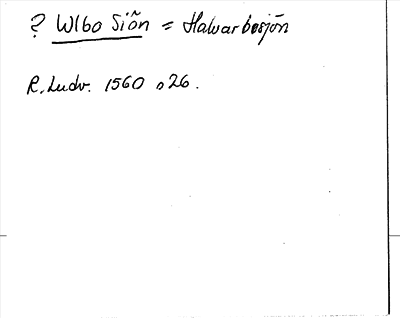 ? Wlbo Siõn = Halvarbosjön
R. Ludv. 1560 s 26.